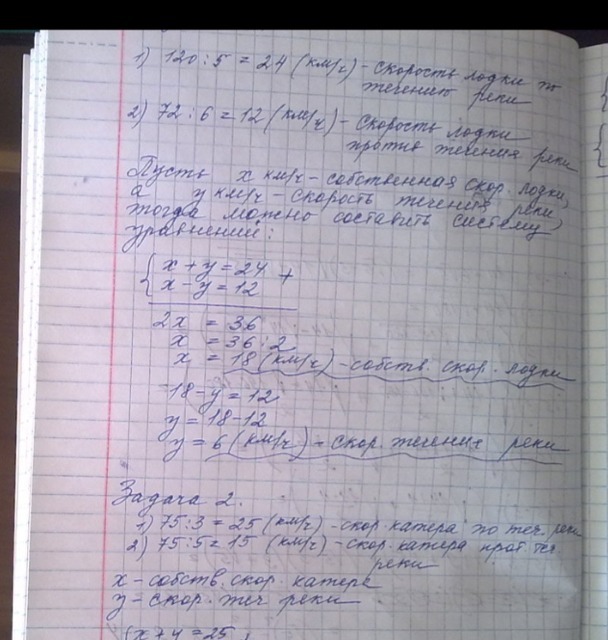 1) 120 : 5 = 24 (км/ч) - скорость лодки по
течению реки
2) 72 : 6 = 12 (км/ч) - скорость лодки
против течения реки
Пусть x км/ч - собственная скор. лодки,
а y км/ч - скорость течения реки,
тогда можно составить систему
уравнений:
{ x + y = 24 +
x - y = 12
2x = 36
x = 36 : 2
x = 18 (км/ч) - собств. скор. лодки
18 - y = 12
y = 18 - 12
y = 6 (км/ч) - скор. течения реки
Задача 2.
1) 75 : 3 = 25 (км/ч) - скор. катера по теч. реки
2) 75 : 5 = 15 (км/ч) - скор. катера прот теч.
реки
x - собств. скор. катера
y - скор. теч реки
{ x + y = 25